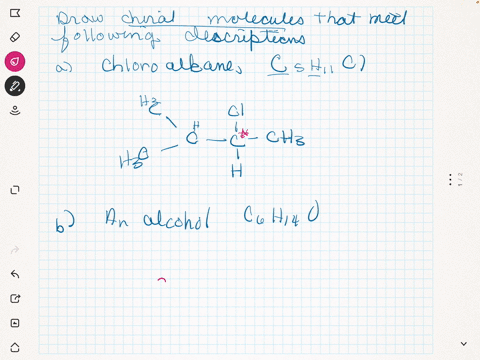 Draw chiral molecules that meet
following descriptions
a) chloro alkane, C5H11Cl
H3C
H
Cl
C
C* CH3
H3C
H
b) An alcohol C6H14O
1/2